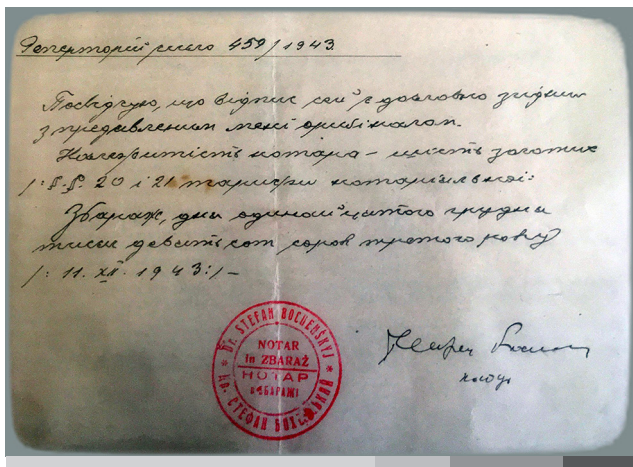 Реперторій число 459/1943.
Посвідчую, що відпис сей є дословно згідний
з предявленим мені оригіналом.
Належитість нотара – шість золотих
/: §.§. 20 і 21 тарифи нотаріяльної:
Збараж, дня одинайцятого грудня
тисяч девятьсот сорок третого року
/: 11. XII. 1943:/ –
Dr. STEFAN BOCHEŃSKYJ
NOTAR
in ZBARAŻ
НОТАР
в ЗБАРАЖІ
Др. СТЕФАН БОХЕНСЬКИЙ